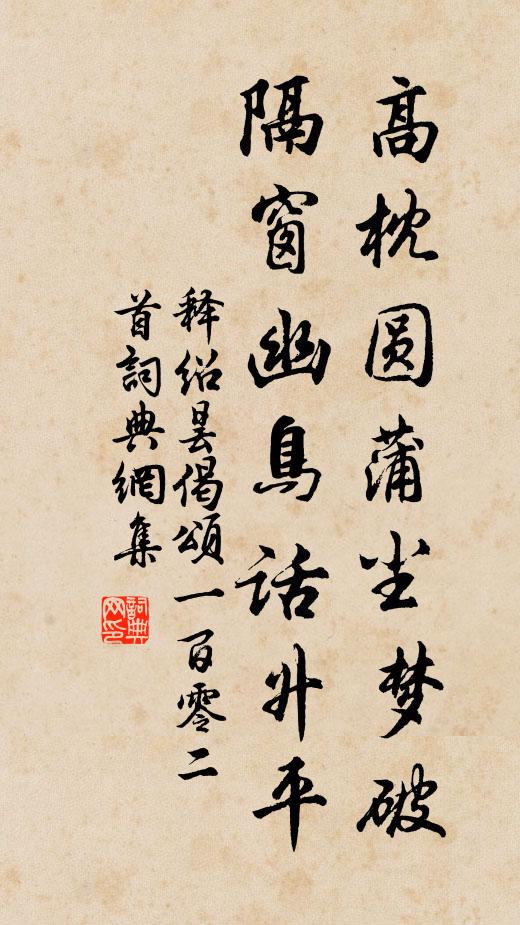 高枕圆蒲尘梦破
隔窗幽鳥话升平
释绍昙偈頌一百零二
首詞典網集
詞典网印